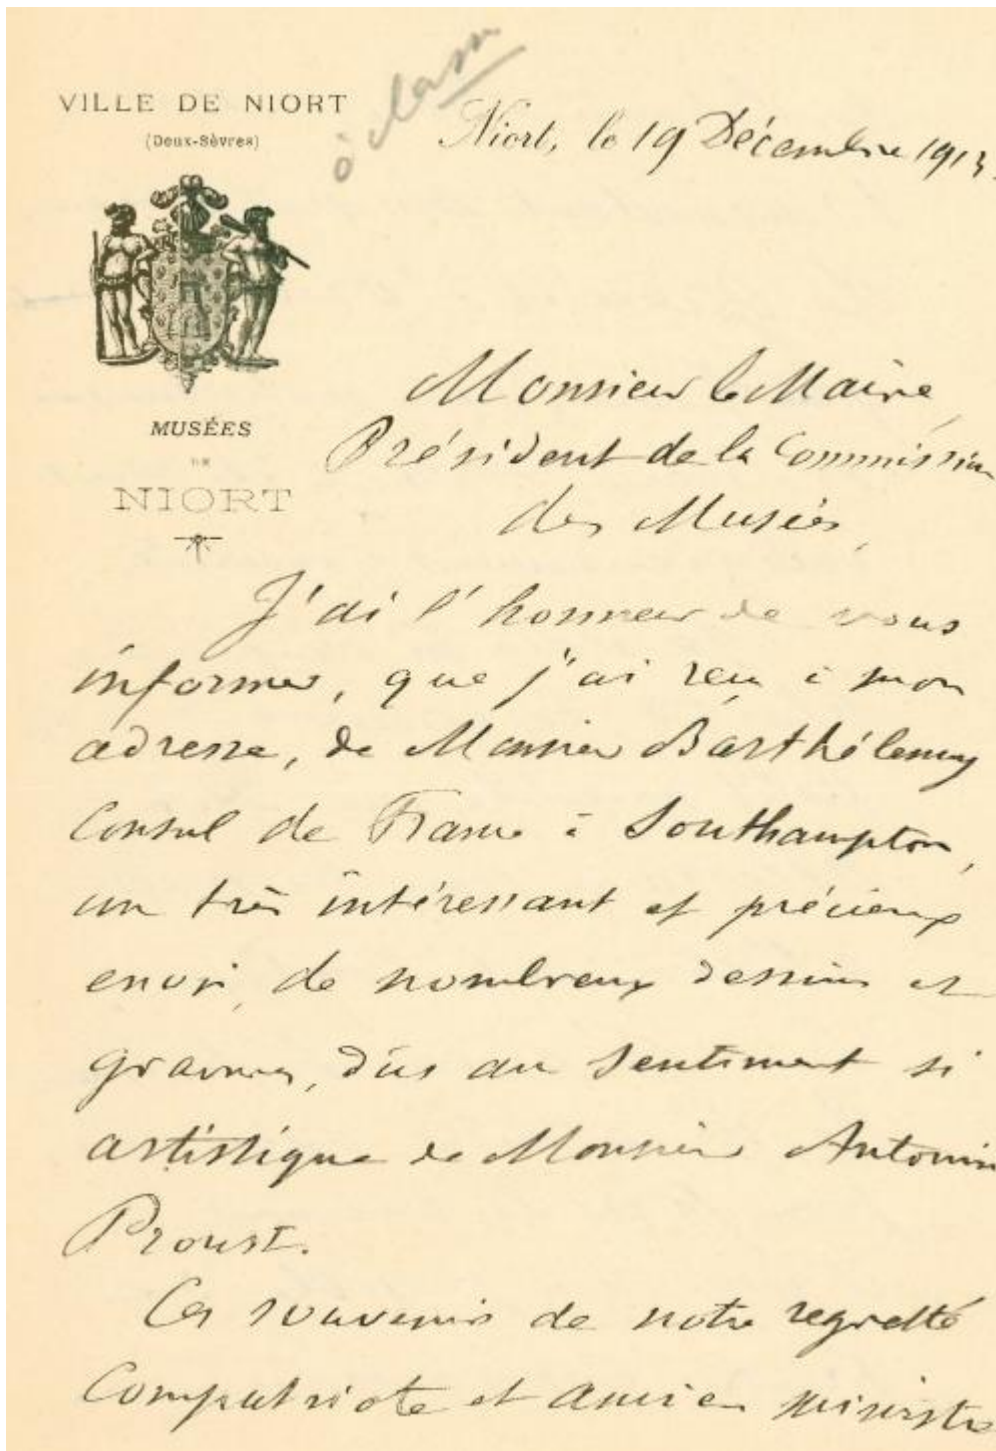 à classer
VILLE DE NIORT
(Deux-Sèvres)
Niort, le 19 Décembre 1913.
MUSÉES
DE
NIORT
Monsieur le Maire,
Président de la Commission
des Musées,
J'ai l'honneur de vous
informer, que j'ai reçu à mon
adresse, de Monsieur Barthélemy
Consul de France à Southampton,
un très intéressant et précieux
envoi, de nombreux dessins et
gravures, dûs au sentiment si
artistique de Monsieur Antonin
Proust.
Ces souvenirs de notre regretté
Compatriote et ancien ministre